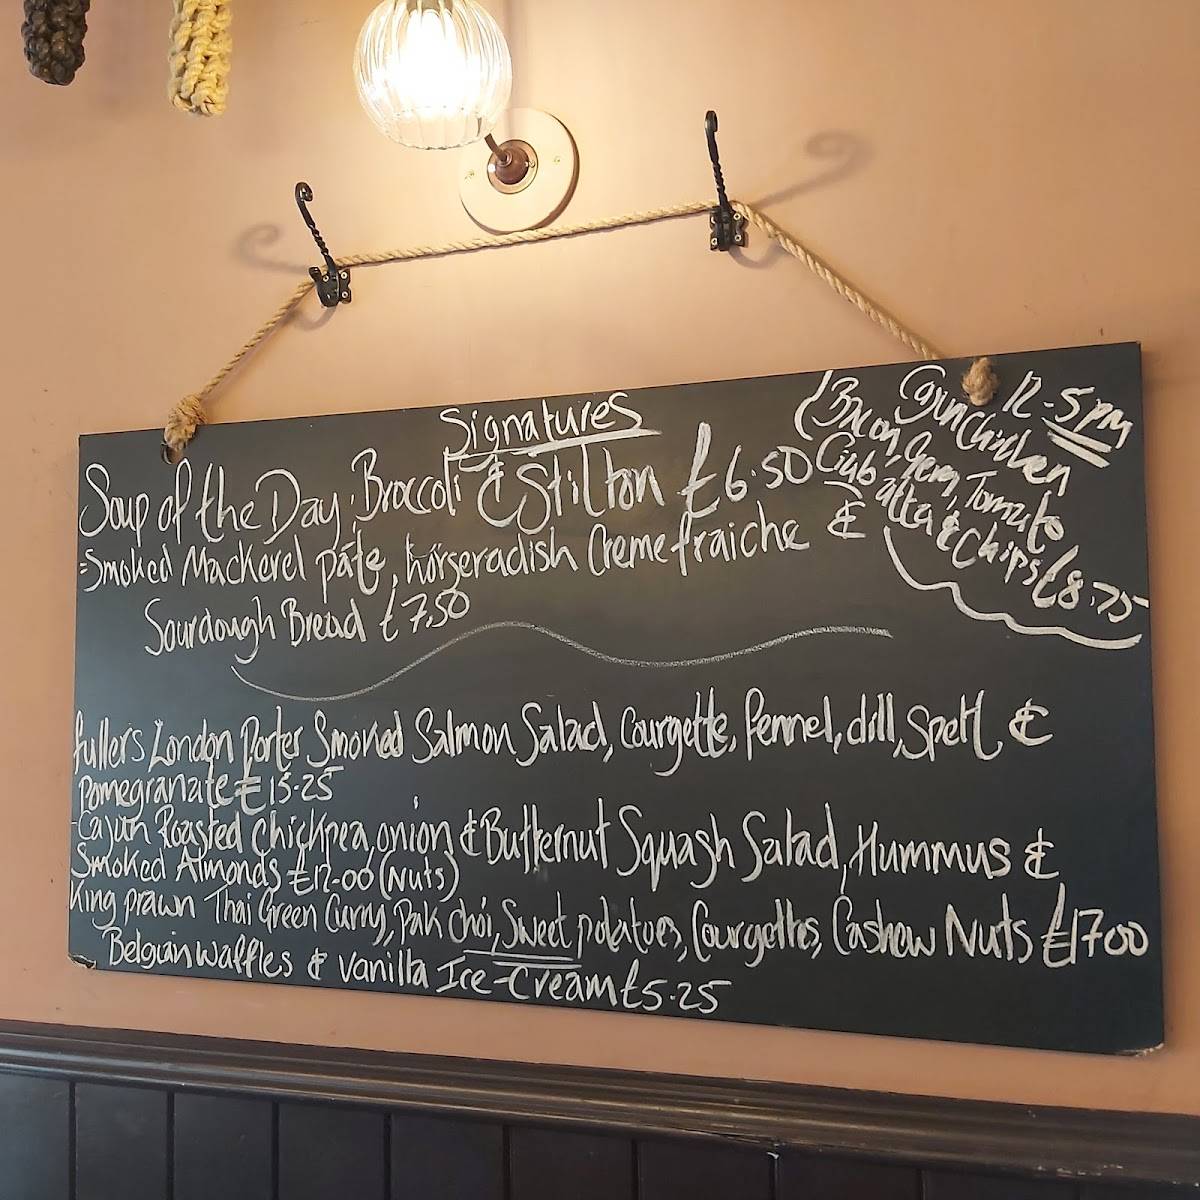 Signatures
Soup of the Day. Broccoli & Stilton £6.50
=Smoked Mackerel pate, horseradish Creme fraiche &
Sourdough Bread £7.50
12-5pm
Chicken
(Bacon, Tomato
Ciabatta & Chips £8.75
fullers London Porter Smoked Salmon Salad, Courgette, fennel, dill, Spelt &
Pomegranate £15.25
-Cajun Roasted Chickpea, onion & Butternut Squash Salad, Hummus &
Smoked Almonds £12.00 (Nuts)
King prawn Thai Green Curry, Pak choi, Sweet potatoes, Courgettes, Cashew Nuts £17.00
Belgian waffles & vanilla Ice-Cream £5.25